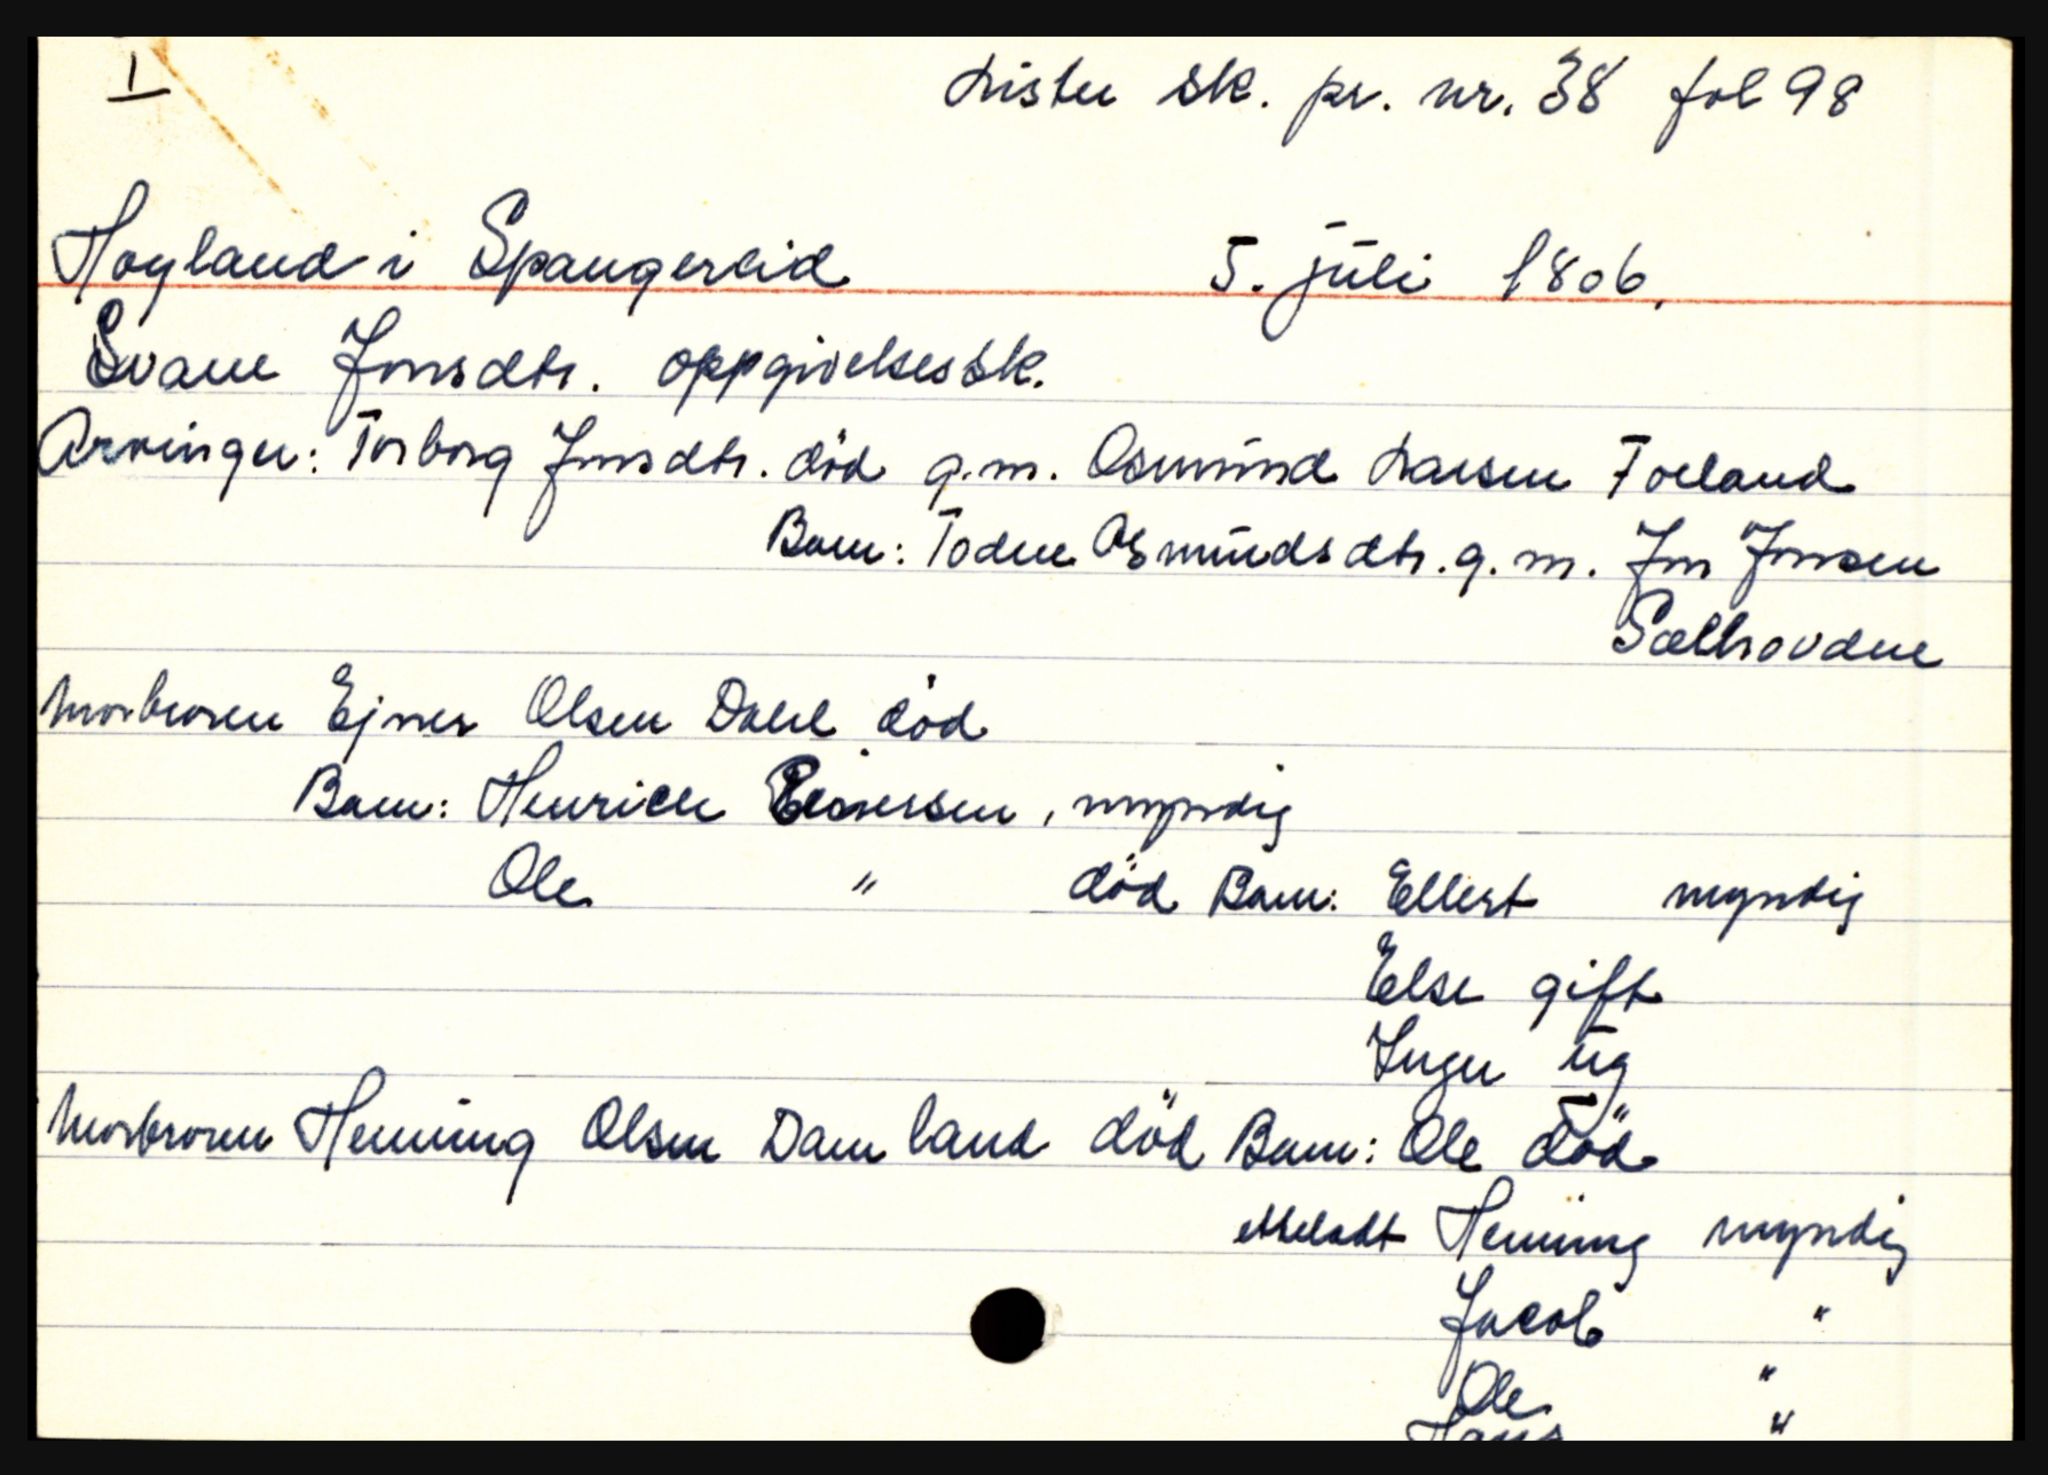 I
Lister sk. pr. nr. 38 fol 98
Høyland i Spangereid 5. juli 1806.
Svane Jonsdtr. oppgivelsessk.
Arvinger: Torborg Jonsdtr. död g.m. Osmund Larsen Foeland
Barn: Todne Osmundsdtr. g.m. Jon Jonsen
Sælhovdene
Morbroren Ejner Olsen Dahl död
Barn: Henrich Einersen, myndig
Ole " död Barn: Ellert myndig
Else gift
Inger ug
Morbroren Henning Olsen Damland död Barn: Ole död
etteladt Henning myndig
Jacob "
Ole "
Hans "